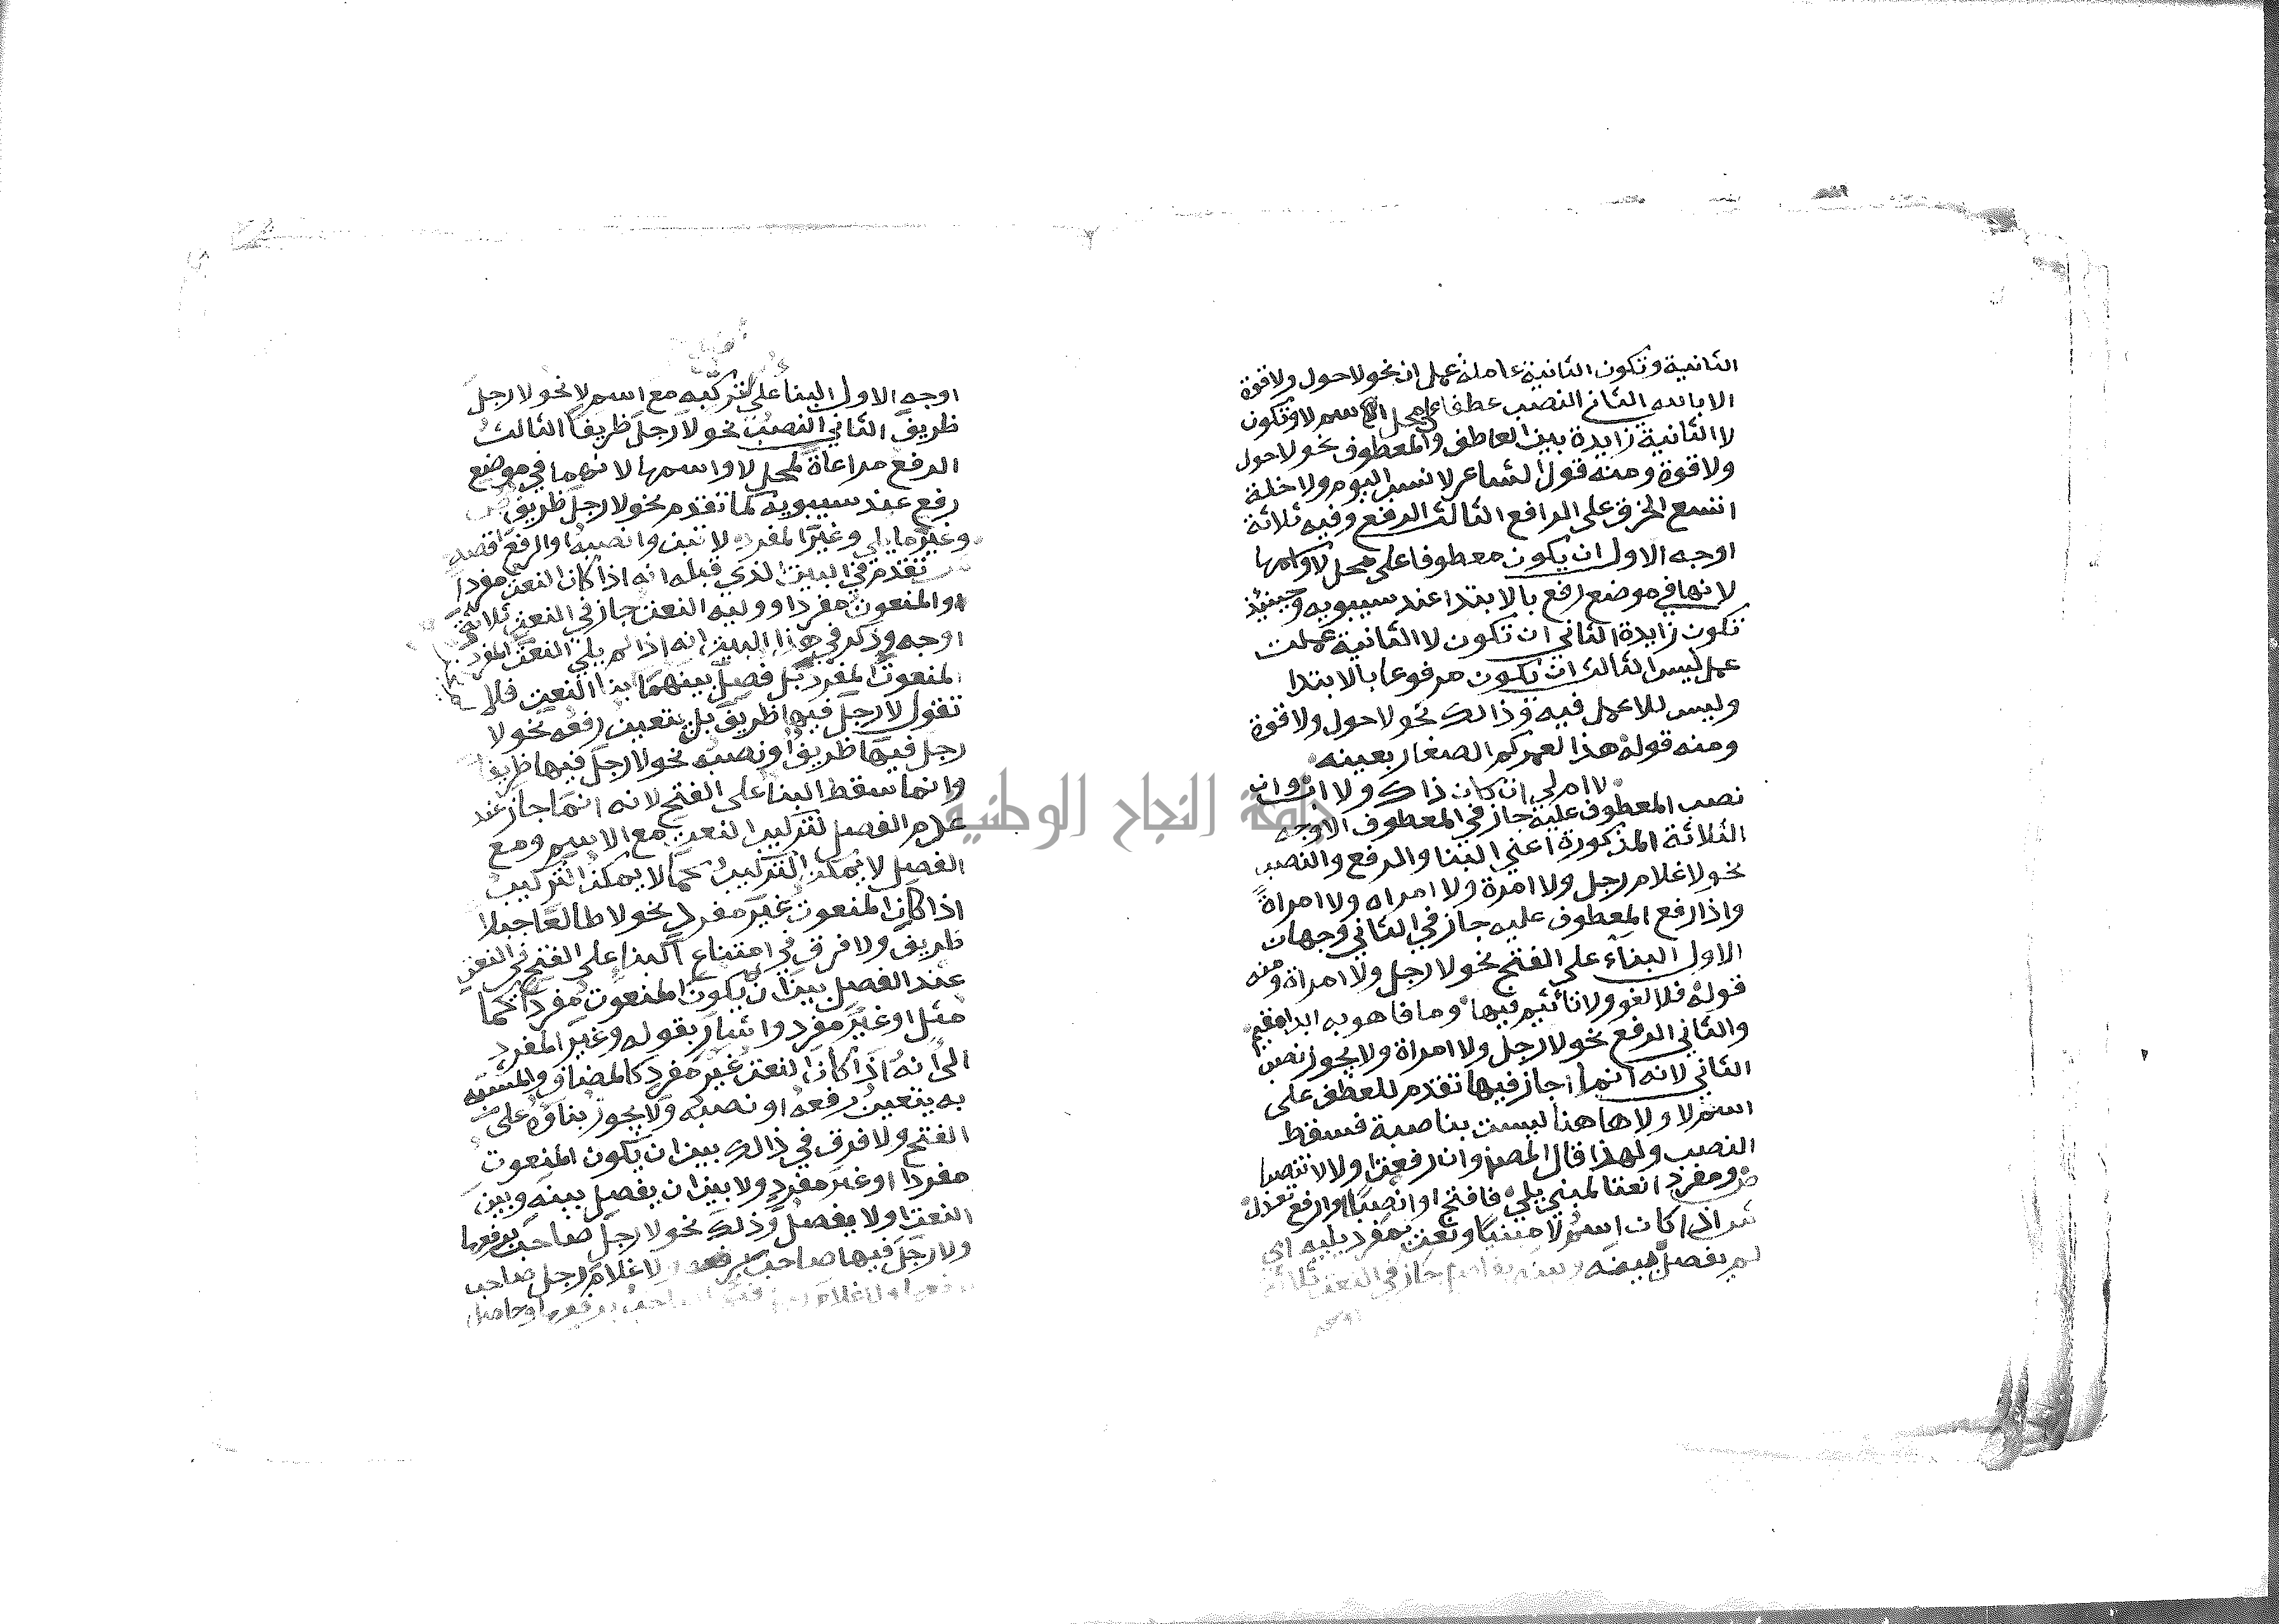 الثانية وتكون الثانية عاملة عمل ان نحو لا حول ولا قوة
الا بالله الثاني النصب عطفا على محل اسم لا وتكون
لا الثانية زايدة بين العاطف والمعطوف نحو لا حول
ولا قوة ومنه قول الشاعر لا نسب اليوم ولا خلة
اتسع الخرق على الراقع الثالث الرفع وفيه ثلاثة
اوجه الاول ان يكون معطوفا على محل لا واسمها
لانها في موضع رفع بالابتدا عند سيبويه وحينيذ
تكون زايدة الثاني ان تكون لا الثانية عملت
عمل ليس الثالث ان يكون مرفوعا بالابتدا
وليس للا عمل فيه وذالك نحو لا حول ولا قوة
ومنه قوله هذا لعمركم الصغار بعينه
لا ام لي ان كان ذاك ولا اب وان
نصب المعطوف عليه جاز في المعطوف الاوجه
الثلاثة المذكورة اعني البنا والرفع والنصب
نحو لا غلام رجل ولا امرة ولا امراه ولا امراةً
واذا رفع المعطوف عليه جاز في الثاني وجهان
الاول البناء على الفتح نحو لا رجل ولا امراة ومنه
قوله فلا لغو ولا تاثيم فيها وما فاهو به ابدا مقيم
والثاني الرفع نحو لا رجل ولا امراة ولا يجوز نصب
الثاني لانه انما جاز فيما تقدم للعطف على
اسم لا ولا هاهنا ليست بناصبة فسقط
النصب ولهذا قال المص وان رفعت اولا لا تنصبا
ص ومفردا نعتا لمبني يلي فافتح او انصبن او ارفع تعدل
ش اذا كان اسم لا مبنيا ونعت بمفرد يليه اي
لم يفصل بينه وبينه بفاصل جاز في النعت ثلاثة
اوجه
اوجه الاول البنا على تركبه مع اسم لا نحو لا رجل
ظريف الثاني النصب نحو لا رجل ظريفا الثالث
الرفع مراعاة لمحل لا واسمها لانهما في موضع
رفع عند سيبويه كما تقدم نحو لا رجل ظريف ص
وغير ما يلي وغير المفرد لا تبن وانصبه او الرفع اقصد
ش تقدم في البيت الذي قبله انه اذا كان النعت مفردا
والمنعوت مفردا ووليه النعت جاز في النعت ثلاثة
اوجه وذكر في هذا البيت انه اذا لم يلي النعت المفرد
المنعوت المفرد بل فصل بينهما بنا النعت فلا
تقول لا رجل فيها ظريف بل يتعين رفعه نحو لا
رجل فيها ظريف او نصبه نحو لا رجل فيها ظريفا
وانما سقط البنا على الفتح لانه انما جاز عند
عدم الفصل لتركيب النعت مع الاسم ومع
الفصل لا يمكن التركيب كما لا يمكن التركيب
اذا كان المنعوت غير مفرد نحو لا طالعا جبلا
ظريف ولا فرق في امتناع البنا على الفتح في النعت
عند الفصل بين ان يكون المنعوت مفردا كما
مثل او غير مفرد واشار بقوله وغير المفرد
الى انه اذا كان النعت غير مفرد كالمضاف والمشبه
به يتعين رفعه او نصبه ولا يجوز بناؤه على
الفتح ولا فرق في ذالك بين ان يكون المنعوت
مفردا او غير مفرد ولا بين ان يفصل بينه وبين
النعت اولا يفصل وذلك نحو لا رجل صاحب بر فيها
ولا رجل فيها صاحب بر ولا غلام رجل صاحب
بر فيها ولا غلام رجل فيها صاحب بر فيها وحاصل
جامعة النجاح الوطنية